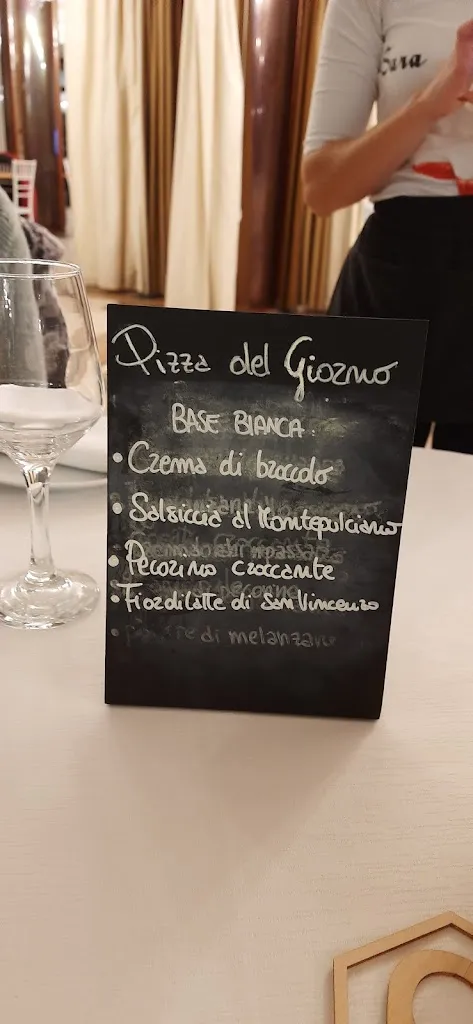 Pizza del Giorno
BASE BIANCA:
• Crema di broccolo
• Salsiccia al Montepulciano
• Pecorino croccante
• Fiordilatte di San Vincenzo
di melanzane